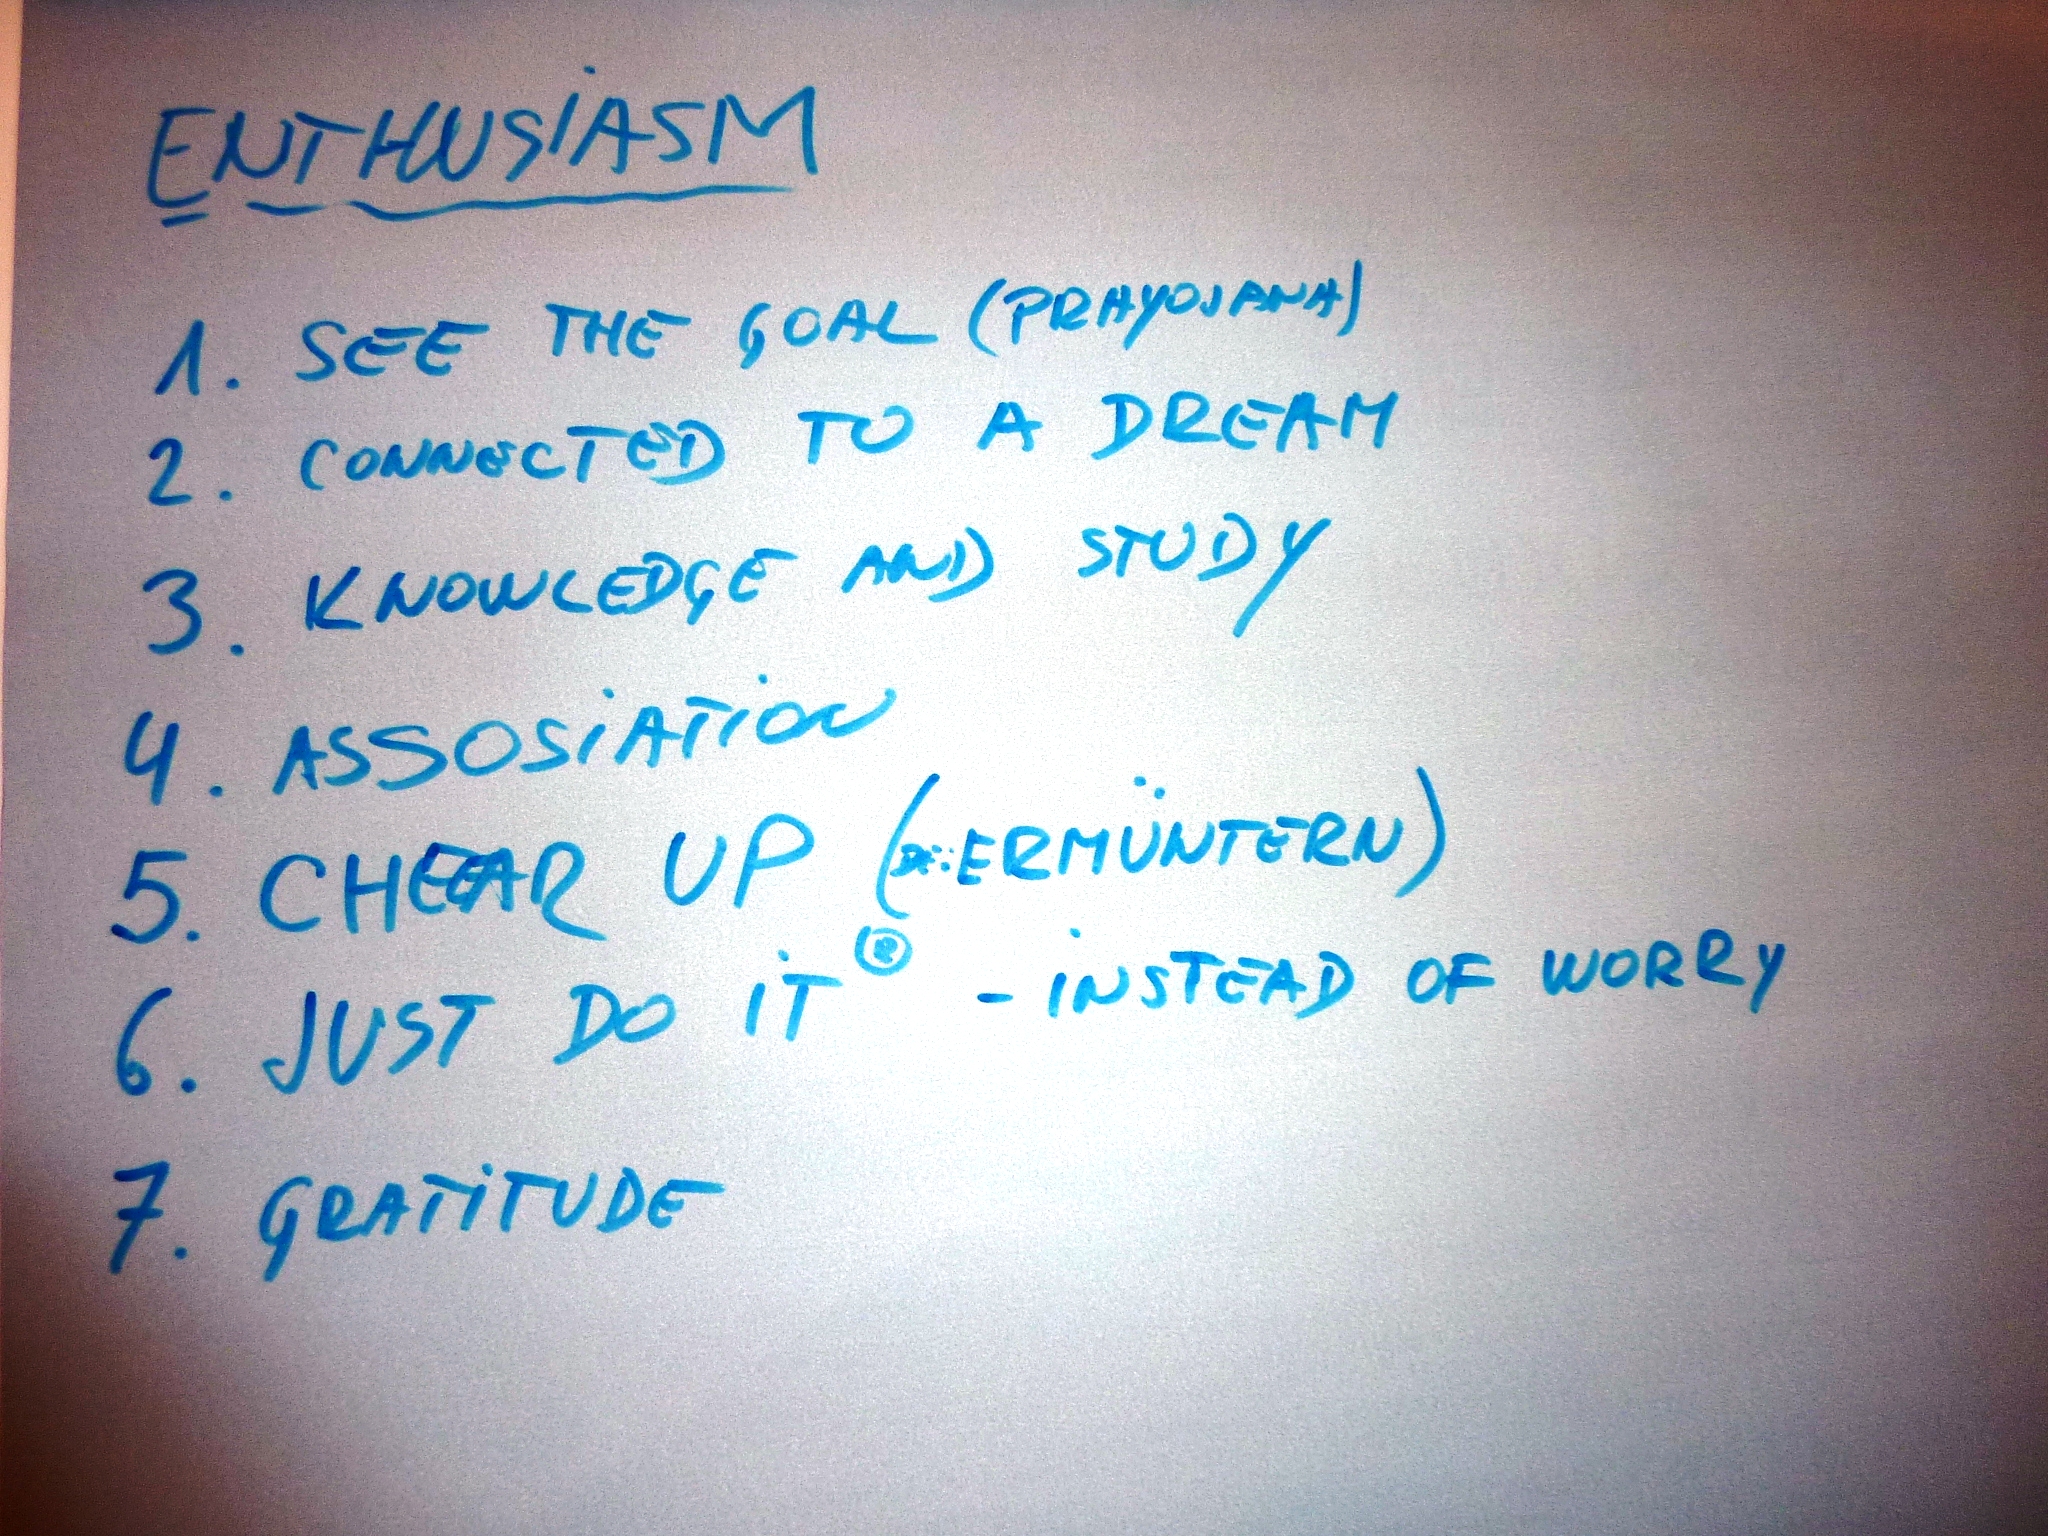 ENTHUSIASM
1. SEE THE GOAL (PRAYOJANA)
2. CONNECTED TO A DREAM
3. KNOWLEDGE AND STUDY
4. ASSOSIATION
5. CHEEAR UP (DE: ERMÜNTERN)
6. JUST DO IT ® - INSTEAD OF WORRY
7. GRATITUDE